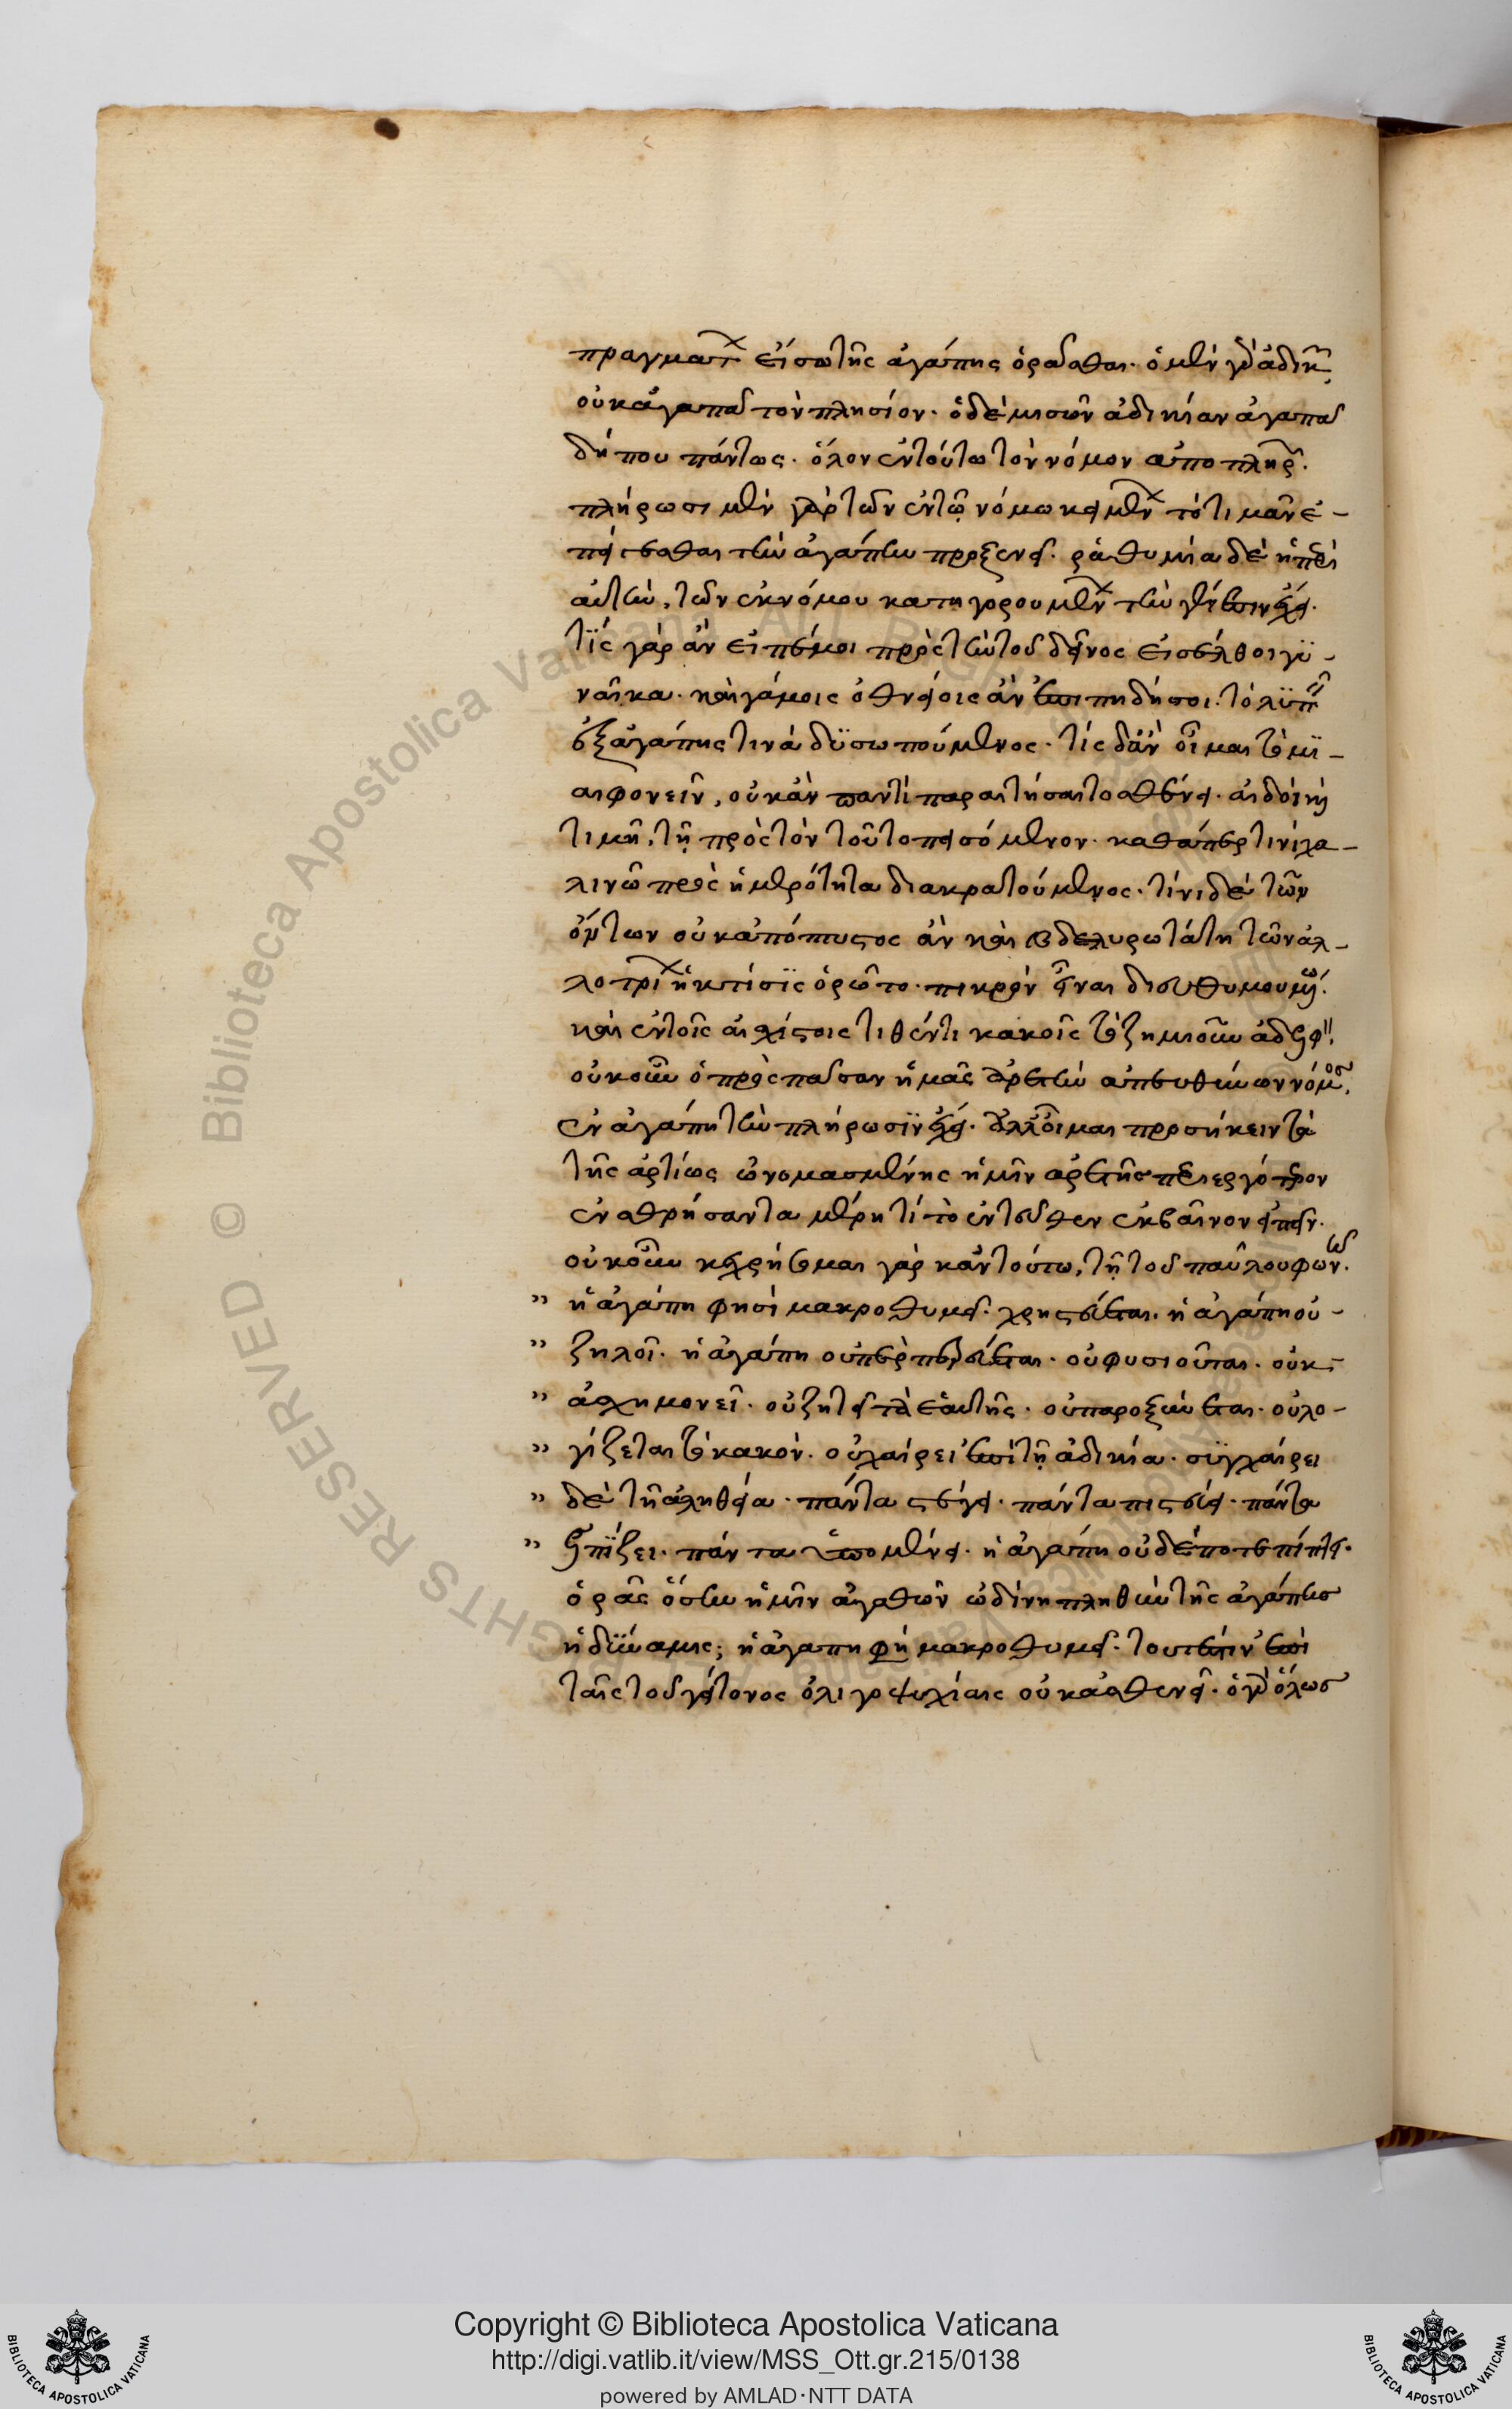 πραγμάτων εἴσω τῆς ἀγάπης ὁρᾶσθαι· ὁ μὲν γὰρ ἀδικῶν
οὐκ ἀγαπᾶ τὸν πλησίον· ὁ δὲ μισῶν ἀδικίαν ἀγαπᾶ
δήπου πάντως· ὅλον ἐν τούτω τὸν νόμον ἀποπληρῶν·
πλήρωσι μὲν γὰρ τῶν ἐν τῶ νόμω κειμένων τὸ τιμᾶν ἑ-
πείγεσθαι τὴν ἀγάπην προξενεῖ· ῥαθυμία δὲ ἡ περὶ
αὐτὴν, τῶν ἐκ νόμου κατηγορουμένων τὴν γένεσιν ἔχει·
τίς γὰρ ἂν εἰπέ μοι πρὸς τὴν τοῦ δεῖνος εἰσέλθοι γυ-
ναῖκα· καὶ γάμοις ὀθνείοις ἂν ἐπιπηδήσοι· τὸ λυπεῖν
ἐξ ἀγάπης τινὰ δυσωπούμενος· τίς δ' ἂν οἶμαι τὸ μι-
αιφονεῖν, οὐκ ἂν παντὶ παραιτήσαιτο σθένει· αἰδοῖ καὶ
τιμῆ, τῆ πρὸς τὸν τοῦτο πεισόμενον· καθάπερ τινὶ χα-
λινῶ πρὸς ἡμερότητα διακρατούμενος· τίνι δὲ τῶν
ὄντων οὐκ ἀπόπτυστος ἂν καὶ βδελυρωτάτη τῶν ἀλ-
λοτρίων ἡ κτίσις ὁρῶτο· πικρὸν εἶναι διενθυμουμένω·
καὶ ἐν τοῖς αἰσχίστοις τιθέντι κακοῖς τὸ ζημιοῦν ἀδελφούς·
οὐκοῦν ὁ πρὸς πᾶσαν ἡμᾶς ἀρετὴν ἀπευθύνων νόμος,
ἐν ἀγάπη τὴν πλήρωσιν ἔχει· ἀλλ' οἶμαι προσήκειν τὰ
τῆς ἀρτίως ὠνομασμένης ἡμῖν ἀρετῆς περιεργότερον
ἐναθρήσαντα μέρη τί τὸ ἐντεῦθεν ἐκβαῖνον εἰπεῖν·
οὐκοῦν κεχρήσομαι γὰρ κἀν τούτω, τῆ τοῦ παύλου φωνῆ·
" ἡ ἀγάπη φησὶ μακροθυμεῖ· χρηστεύεται· ἡ ἀγάπη οὐ-
" ζηλοῖ· ἡ ἀγάπη οὐ περπερεύεται· οὐ φυσιοῦται· οὐκ-
" ἀσχημονεῖ· οὐ ζητεῖ τὰ ἑαυτῆς· οὐ παροξύνεται· οὐ λο-
" γίζεται τὸ κακόν· οὐ χαίρει ἐπὶ τῆ ἀδικία· συγχαίρει
" δὲ τῆ ἀληθεία· πάντα στέγει· πάντα πιστεύει· πάντα
" ἐλπίζει· πάντα ὑπομένει· ἡ ἀγάπη οὐδέποτε πίπτει·
ὁρᾶς ὅσην ἡμῖν ἀγαθῶν ὠδίνη πληθὺν τῆς ἀγάπης
ἡ δύναμις; ἡ ἀγάπη φὴ μακροθυμεῖ· τουτέστιν ἐπὶ
ταῖς τοῦ γείτονος ὀλιγοψυχίαις οὐκ ἀσθενεῖ· ὁ γὰρ ὅλως